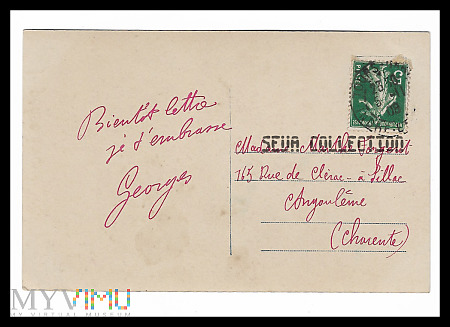 Bientôt lettre
je t'embrasse
Georges
5
SEVA COLLECTION
Madame
165 Rue de Clérac - à Sillac
Angoulême
(Charente)
MYVIMU
MY VIRTUAL MUSEUM